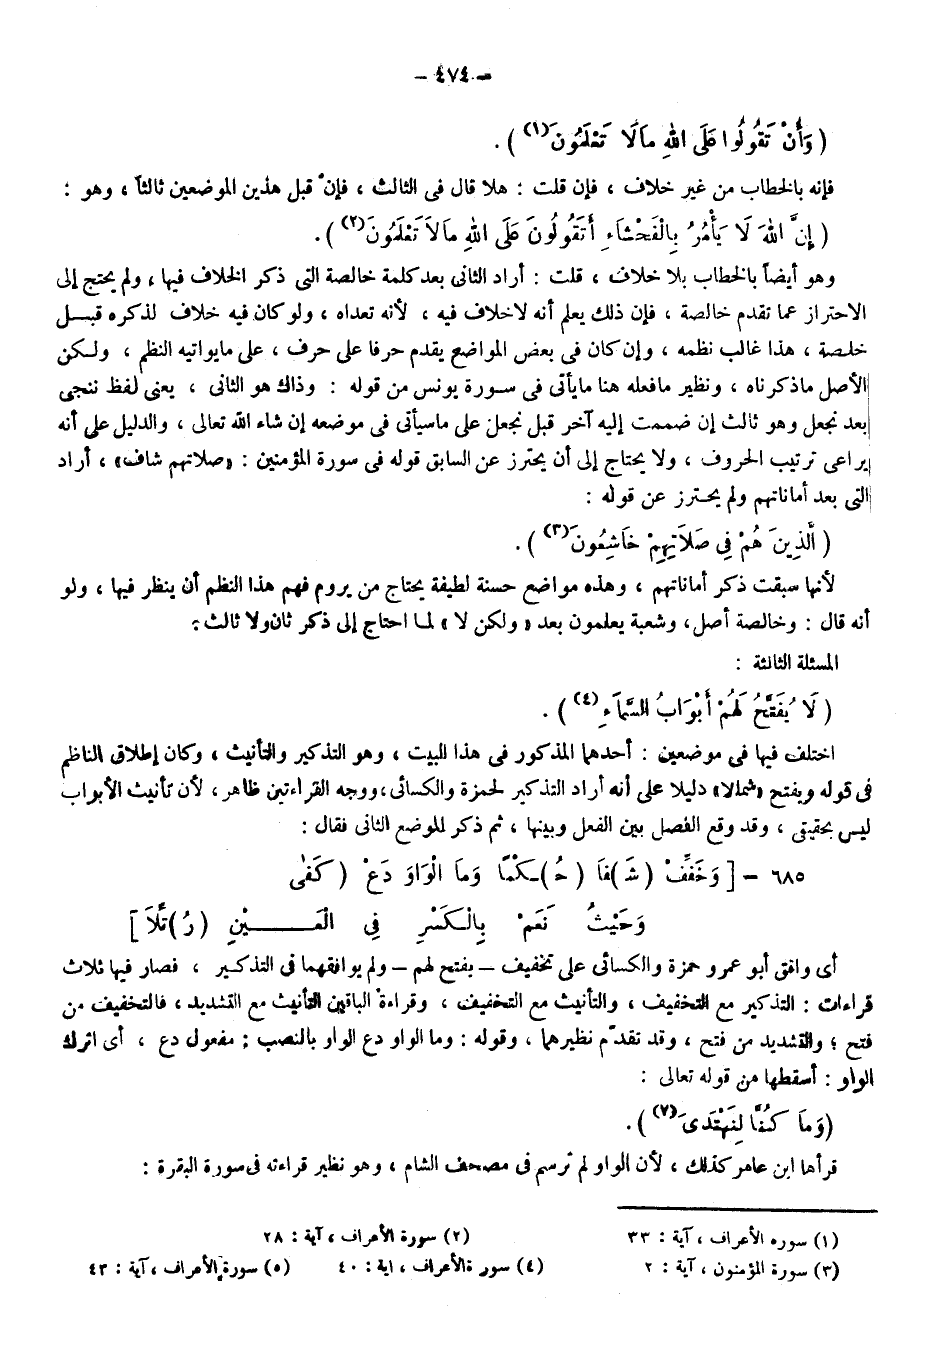 – ٤٧٤ –
( وَأَنْ تَقُولُوا عَلَى اللهِ مَالَا تَعْلَمُونَ(١) ) .
فإنه بالخطاب من غير خلاف ، فإن قلت : هلا قال فى الثالث ، فإن قبل هذين الموضعين ثالثاً ، وهو :
( إِنَّ اللهَ لَا يَأْمُرُ بِالْفَحْشَاءِ أَتَقُولُونَ عَلَى اللهِ مَالَا تَعْلَمُونَ(٢) ) .
وهو أيضاً بالخطاب بلا خلاف ، قلت : أراد الثانى بعد كلمة خالصة التى ذكر الخلاف فيها ، ولم يحتج إلى
الاحتراز عما تقدم خالصة ، فإن ذلك يعلم أنه لاخلاف فيه ، لأنه تعداه ، ولو كان فيه خلاف لذكره قبـل
خلصة ، هذا غالب نظمه ، وإن كان فى بعض المواضع يقدم حرفا على حرف ، على مايواتيه النظم ، ولـكن
الأصل ماذكرناه ، ونظير مافعله هنا مايأتى فى سـورة يونس من قوله : وذاك هو الثانى ، يعنى لفظ ننجى
بعد نجعل وهو ثالث إن ضممت إليه آخر قبل نجعل على ماسيأتى فى موضعه إن شاء الله تعالى ، والدليل على أنه
يراعى ترتيب الحروف ، ولا يحتاج إلى أن يحترز عن السابق قوله فى سورة المؤمنين : «صلاتهم شاف» ، أراد
التى بعد أماناتهم ولم يحـترز عن قوله :
( الَّذِينَ هُمْ فِى صَلَاتِهِمْ خَاشِعُونَ(٣) ) .
لأنها سبقت ذكر أماناتهم ، وهذه مواضع حسنة لطيفة يحتاج من يروم فهم هذا النظم أن ينظر فيها ، ولو
أنه قال : وخالصة أصل، وشعبة يعلمون بعد « ولكن لا » لما احتاج إلى ذكر ثان ولا ثالث ؟
المسئلة الثالثة :
( لَا يُفَتَّحُ لَهُمْ أَبْوَابُ السَّمَاءِ(٤) ) .
اختلف فيها فى موضعين : أحدهما المذكور فى هذا البيت ، وهو التذكير والتأنيث ، وكان إطلاق الناظم
فى قوله ويفتح «شمللا» دليلا على أنه أراد التذكير لحمزة والكسائى، ووجه القراءتين ظاهر، لأن تأنيث الأبواب
ليس بحقيقى ، وقد وقع الفصل بين الفعل وبينها ، ثم ذكر الموضع الثانى فقال :
٦٨٥ – [ وَخَفِّفْ (شَ)فَا (حُ)ـكْمًا وَمَا الْوَاوَ دَعْ (كَفَى
وَحَيْثُ نَعَمْ بِالْـكَسْرِ فِى الْعَـــيْنِ (رُ)تِّلَا ]
أى وافق أبو عمرو حمزة والكسائى على تخفيف – يفتح لهم – ولم يوافقهما فى التذكـير ، فصار فيها ثلاث
قراءات : التذكير مع التخفيف ، والتأنيث مع التخفيف ، وقراءة الباقين التأنيث مع التشديد ، فالتخفيف من
فتح ؛ والتشديد من فتح ، وقد تقدّم نظيرهما ، وقوله : وما الواو دع الواو بالنصب ; مفعول دع ، أى اترك
الواو : أسقطها من قوله تعالى :
(وَمَا كُنَّا لِنَهْتَدِىَ(٧) ) .
قرأها ابن عامر كذلك ، لأن الواو لم ترسم فى مصحف الشام ، وهو نظير قراءته فى سورة البقرة :
(١) سوره الأعراف ، آية : ٣٣ (٢) سورة الأعراف ، آية : ٢٨
(٣) سورة المؤمنون ، آية : ٢ (٤) سورة الأعراف ، اية : ٤٠ (٥) سورة الأعراف ، آية : ٤٣